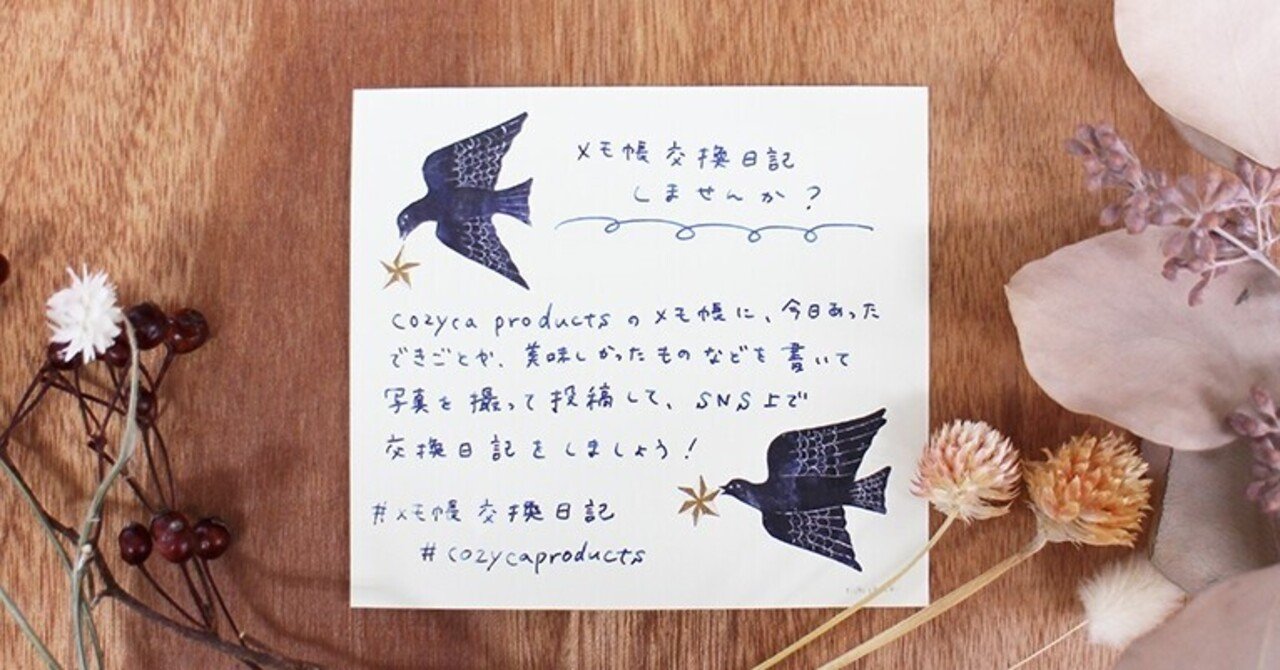 メモ帳交換日記
しませんか？
cozyca productsのメモ帳に、今日あった
できごとや、美味しかったものなどを書いて
写真を撮って投稿して、SNS上で
交換日記をしましょう！
#メモ帳交換日記
#cozycaproducts